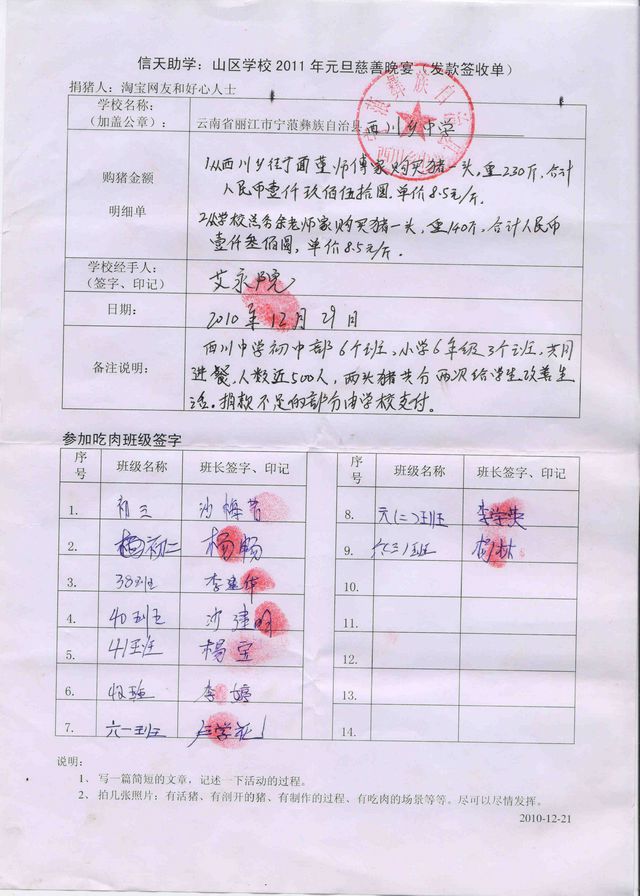 信天助学：山区学校2011年元旦慈善晚宴（发款签收单）
捐猪人：淘宝网友和好心人士
学校名称：
（加盖公章）：
云南省丽江市宁蒗彝族自治县西川乡中学
购猪金额
明细单
1.从西川乡往下面董师傅家购买猪一头，重230斤，合计
人民币壹仟玖佰伍拾圆，单价8.5元/斤。
2.从学校总务余老师家购买猪一头，重140斤，合计人民币
壹仟叁佰圆，单价8.5元/斤。
学校经手人：
（签字、印记）
艾永院
日期：
2010年12月29日
备注说明：
西川中学初中部6个班，小学6年级3个班，共同
进餐，人数近500人，两头猪共分两次给学生改善生
活。捐款不足的部分由学校支付。
参加吃肉班级签字
序号 班级名称 班长签字、印记
1. 初三 沙梅
2. 初二 杨畅
3. 38班 李建华
4. 40班 沙建明
5. 41班 杨宝
6. 42班 李婷
7. 六一班 卢学花
序号 班级名称 班长签字、印记
8. 六(二)班 李学英
9. 六(三)班 杨林
10.
11.
12.
13.
14.
说明：
1、写一篇简短的文章，记述一下活动的过程。
2、拍几张照片：有活猪、有剖开的猪、有制作的过程、有吃肉的场景等等。尽可以尽情发挥。
2010-12-21